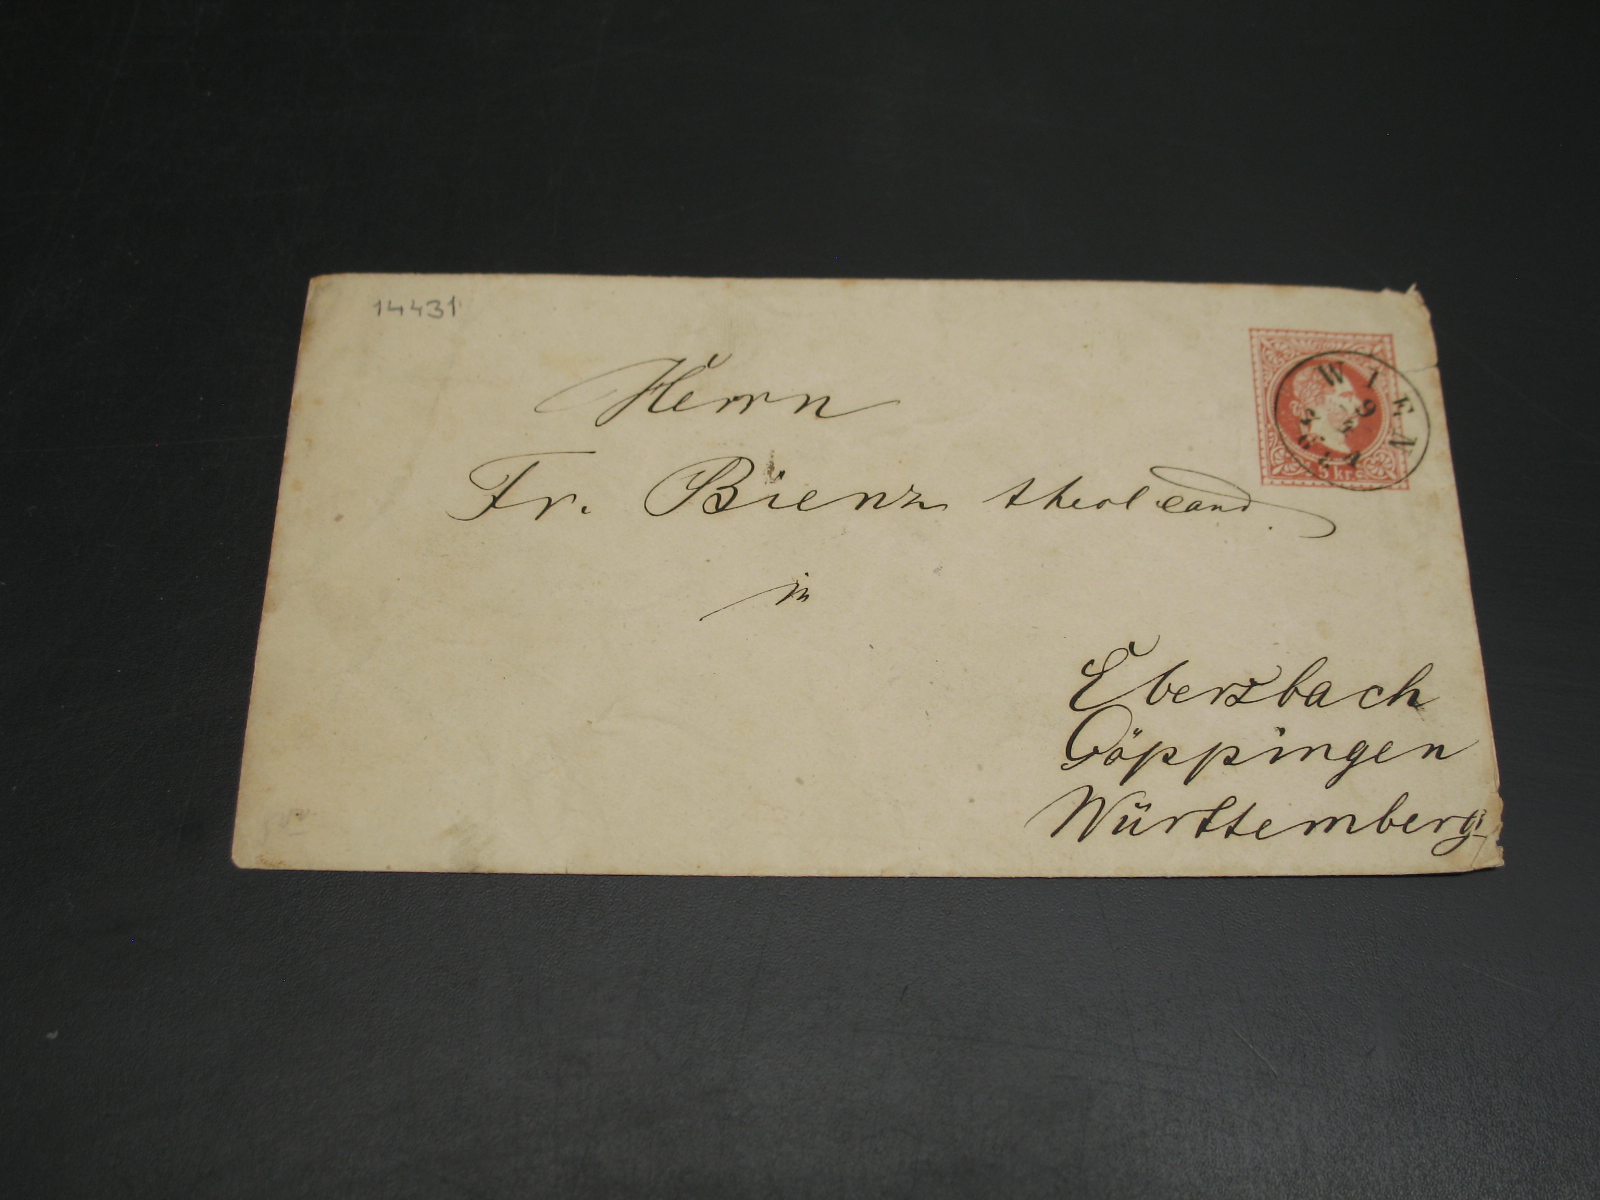 14431
WIEN
5 kr.
Herrn
Fr. Bienz theol cand.
in
Eberzbach
Göppingen
Württemberg